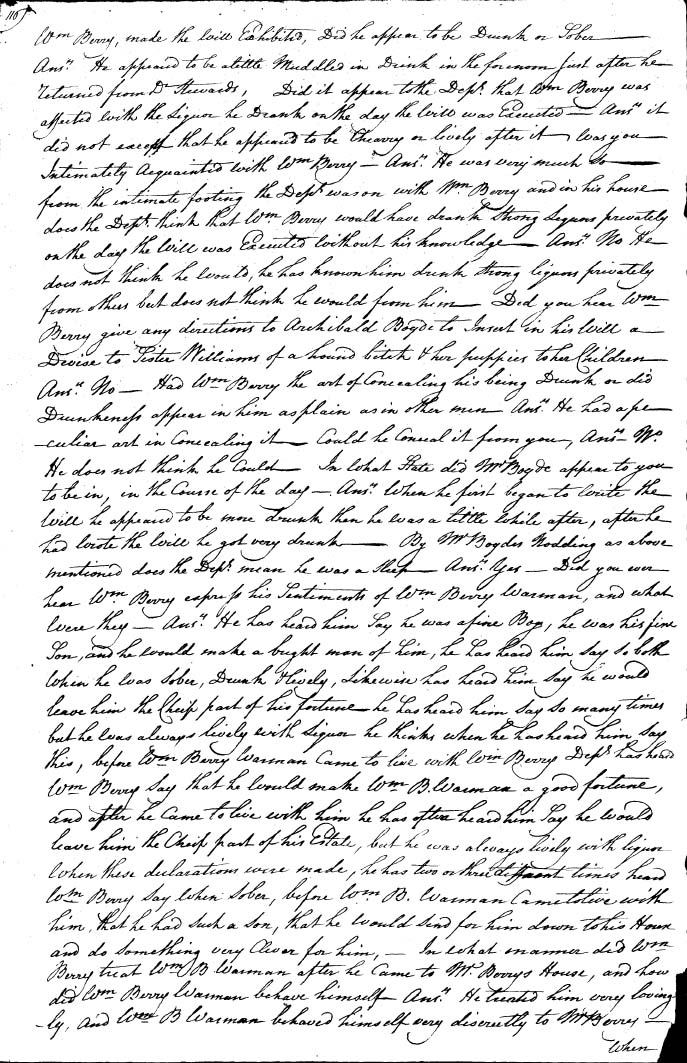 116
Wm Berry, made the Will Exhibited, Did he appear to be Drunk or Sober —
Ansr. He appeared to be a little Muddled in Drink in the forenoon just after he
returned from Dr Stewards, Did it appear to the Dept. that Wm Berry was
affected with the Liquor he Drank on the day the Will was Executed — Ansr. it
did not except that he appeared to be Chearry or lively after it, Was you
Intimately Acquainted with Wm Berry — Ansr. He was very much so —
from the intimate footing the Dept. was on with Wm. Berry and in his house —
does the Dept. think that Wm Berry would have drank Strong Liquors privately
on the day the Will was Executed without his knowledge — Ansr. No He
does not think he would, he has known him drink Strong liquors privately
from others but does not think he would from him — Did you hear Wm
Berry give any directions to Archibald Boyde to Insert in his Will a —
Devise to Sister Williams of a hound bitch & her puppies to her Children —
Ansr. No — Had Wm Berry the art of Concealing his being Drunk or did
Drunkeness appear in him as plain as in other men Ansr. He had a pe
-culiar art in Concealing it — Could he Conceal it from you, Ansr. No
He does not think he Could — In What State did Mr Boyde appear to you
to be in, in the Course of the day — Ansr. When he first began to write the
Will he appeared to be more drunk then he was a little while after, after he
had wrote the Will he got very drunk — By Mr Boydes Nodding as above
mentioned does the Dept. mean he was a Sleep — Ansr. Yes — Did you ever
hear Wm. Berry express his Sentiments of Wm Berry Warman, and what
Were they — Ansr. He has heard him Say he was a fine Boy, he was his fine
Son, and he would make a bright man of him, he has heard him say so both
When he was Sober, Drunk & lively, Likewise has heard him say he would
leave him the Cheif part of his fortune he has heard him say so many times
but he was always lively with Liquor he thinks when he has heard him say
this, before Wm Berry Warman Came to live with Wm Berry Dept. has heard
Wm Berry Say that he would make Wm B. Warman a good fortune,
and after he Came to live with him he has often heard him Say he would
leave him the Cheif part of his Estate, but he was always lively with liquor
When these declarations were made, he has two or three different times heard
Wm Berry say When sober, before Wm B. Warman Came to live with
him, that he had such a son, that he would send for him down to his House
and do something very Clever for him, — In what manner did Wm
Berry treat Wm B Warman after he Came to Mr. Berrys House, and how
did Wm Berry Warman behave himself Ansr. He treated him very loving
-ly, And Wm B Warman behaved himself very discreetly to Mr Berry —
When